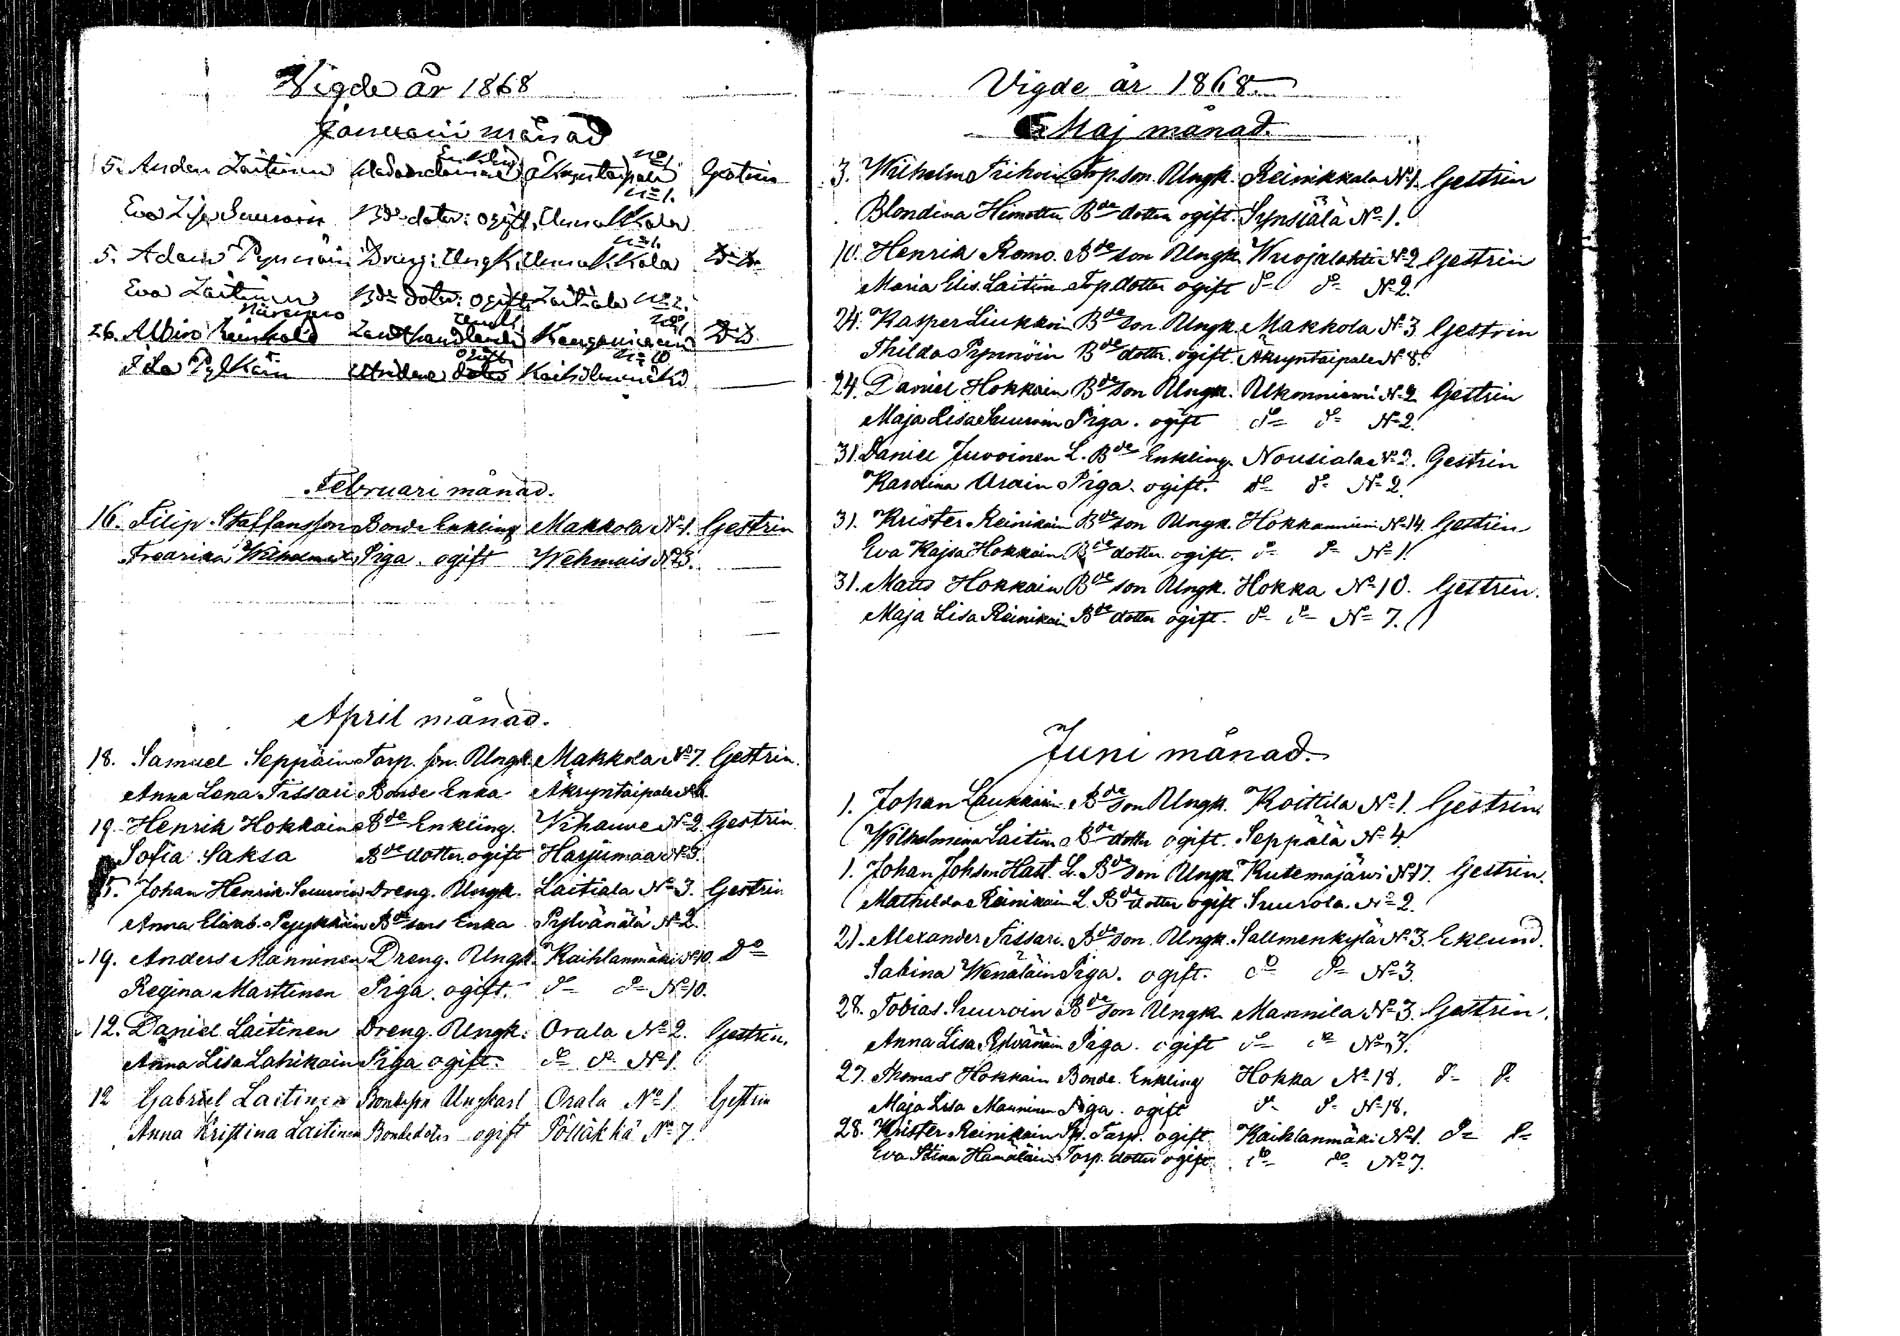 Vigde år 1868
Januarii månad
Enkling No 1.
5. Anders Laitinen Åkryntaipale Gestrin
No 1.
Eva Lisa Suuroin Bde doter: ogift,
No 1.
5. Adam Pynnöin Dreng: Ungk. Do Do
Eva Laitinen Bde doter: ogift Laitiala No 2.
26. Albin Reinhold Landthandlande Kangasniemi Do Do
No 10
Ida Pylkäin doter Kaihilanmäki
Februari månad.
16. Filip Staffansson Bonde Enkling Makkola No 1. Gestrin
Fredrika Wilhelmsd. Piga ogift Wehmais No 3.
April månad.
18. Samuel Seppäin Torp. son. Ungk. Makkola No 7. Gestrin.
Anna Lena Tissari Bonde Enka Åkryntaipale No 6.
19. Henrik Hokkain Bde Enkling. Vihause No 2 Gestrin.
Sofia Saksa Bde dotter ogift Harjumaa No 5.
5. Johan Henrik Suuroin Dreng. Ungk. Laitiala No 3. Gestrin
Anna Elisab. Pyykkäin Bde sons Enka Pylvänälä No 2.
19. Anders Manninen Dreng. Ungk. Kaihlanmäki No 10. Do
Regina Marttinen Piga. ogift. do do No 10.
12. Daniel Laitinen Dreng. Ungk. Orala No 2. Gestrin.
Anna Lisa Lahikain Piga ogift. do do No 1.
12 Gabriel Laitinen Bondeson Ungkarl Orala No 1. Gestrin
Anna Kristina Laitinen Bondedoter ogift Pölläkkä No 7.
Vigde år 1868.
Maj månad.
3. Wilhelm Torp. son. Ungk. Reinikkala No 1. Gestrin
Blondina Himottu Bde dotter ogift. Synsiälä No 1.
10. Henrik Romo. Bde son Ungk. Wuojalahti No 2 Gestrin
Maria Elis. Laitin Torp. dotter ogift do do No 2.
24. Kasper Liukkoin Bde son. Ungk. Makkola No 3 Gestrin
Thilda Pynnöin Bde dotter. ogift. Åkryntaipale No 8.
24. Daniel Hokkain Bde son Ungk. Ukonniemi No 2 Gestrin
Maja Lisa Suuroin Piga. ogift do do No 2.
31. Daniel Juvoinen L. Bde Enkling. Nousiala No 2. Gestrin
Karolina Urain Piga. ogift. do do No 2.
31. Krister Reinikain Bde son Ungk. Hokkaniemi No 14. Gestrin
Eva Kajsa Hokkain Bde dotter ogift. do do No 1.
31. Matts Hokkain Bde son Ungk. Hokka No 10. Gestrin.
Maja Lisa Reinikain Bde dotter ogift. do do No 7.
Juni månad.
1. Johan Laukkain Bde son Ungk. Koittila No 1. Gestrin.
Wilhelmina Laitin Bde dotter ogift. Seppälä No 4.
1. Johan Johsson Hast L. Bde son Ungk. Kutemajärvi No 17. Gestrin.
Mathilda Reinikain L. Bde dotter ogift Suurola. No 2.
21. Alexander Tissari Bde son. Ungk. Sallmenkylä No 3. Eklund.
Sabina Wenäläin Piga. ogift. do do No 3.
28. Tobias Suuroin Bde son Ungk. Mannila No 3. Gestrin.
Anna Lisa Pylvänäin Piga. ogift do do No 3.
27. Thomas Hokkain Bonde. Enkling Hokka No 18. do do
Maja Lisa Manninen Piga. ogift do do No 18.
28. Krister Reinikain Torp. ogift. Kaihlanmäki No 1. do do
Eva Stina Hämäläin Torp. dotter ogift. do do No 7.